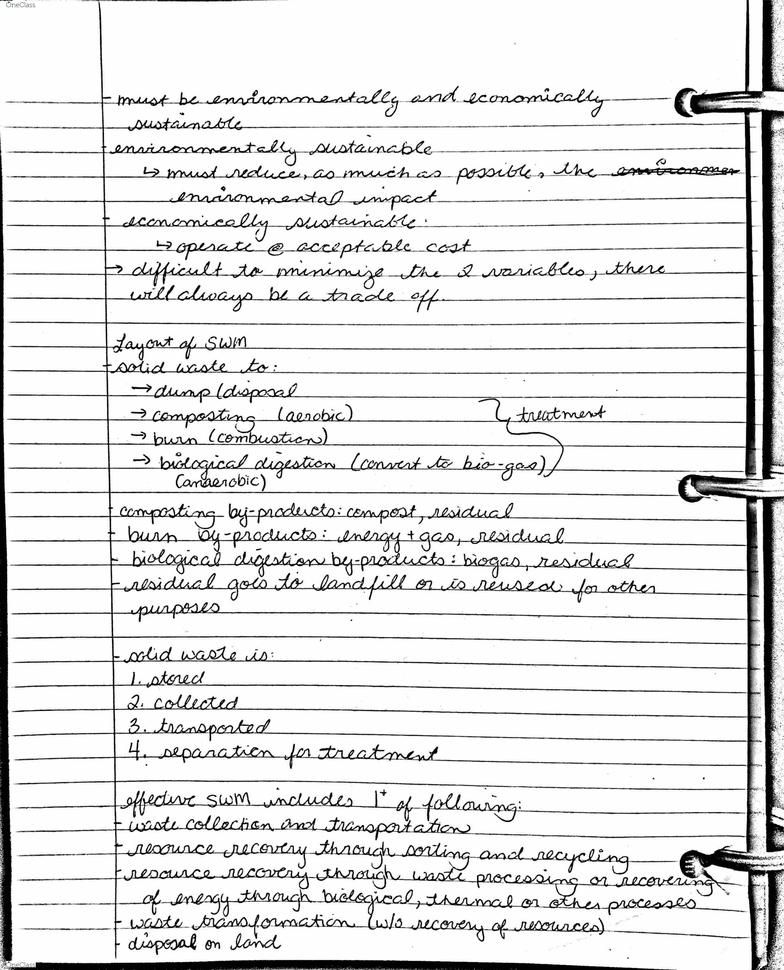 OneClass
- must be environmentally and economically
sustainable
- environmentally sustainable
↳ must reduce, as much as possible, the environmen
environmental impact
- economically sustainable:
↳ operate @ acceptable cost
→ difficult to minimize the 2 variables, there
will always be a trade off.
Layout of SWM
- solid waste to:
→ dump/disposal
→ composting (aerobic)
treatment
→ burn (combustion)
→ biological digestion (convert to bio-gas)
(anaerobic)
- composting by-products: compost, residual
- burn by-products: energy + gas, residual
- biological digestion by-products: biogas, residual
- residual goes to landfill or is reused for other
purposes
- solid waste is:
1. stored
2. collected
3. transported
4. separation for treatment
effective SWM includes 1+ of following:
- waste collection and transportation
- resource recovery through sorting and recycling
- resource recovery through waste processing or recovering
of energy through biological, thermal or other processes
- waste transformation (w/o recovery of resources)
- disposal on land
OneClass